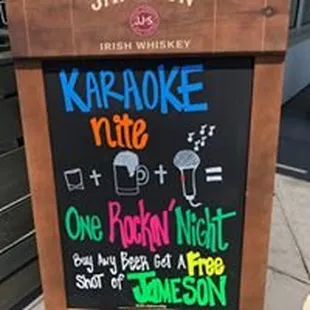 JJ&S
IRISH WHISKEY
KARAOKE
nite
+ + =
One Rockin' Night
Buy Any Beer Get A Free
Shot of JAMESON